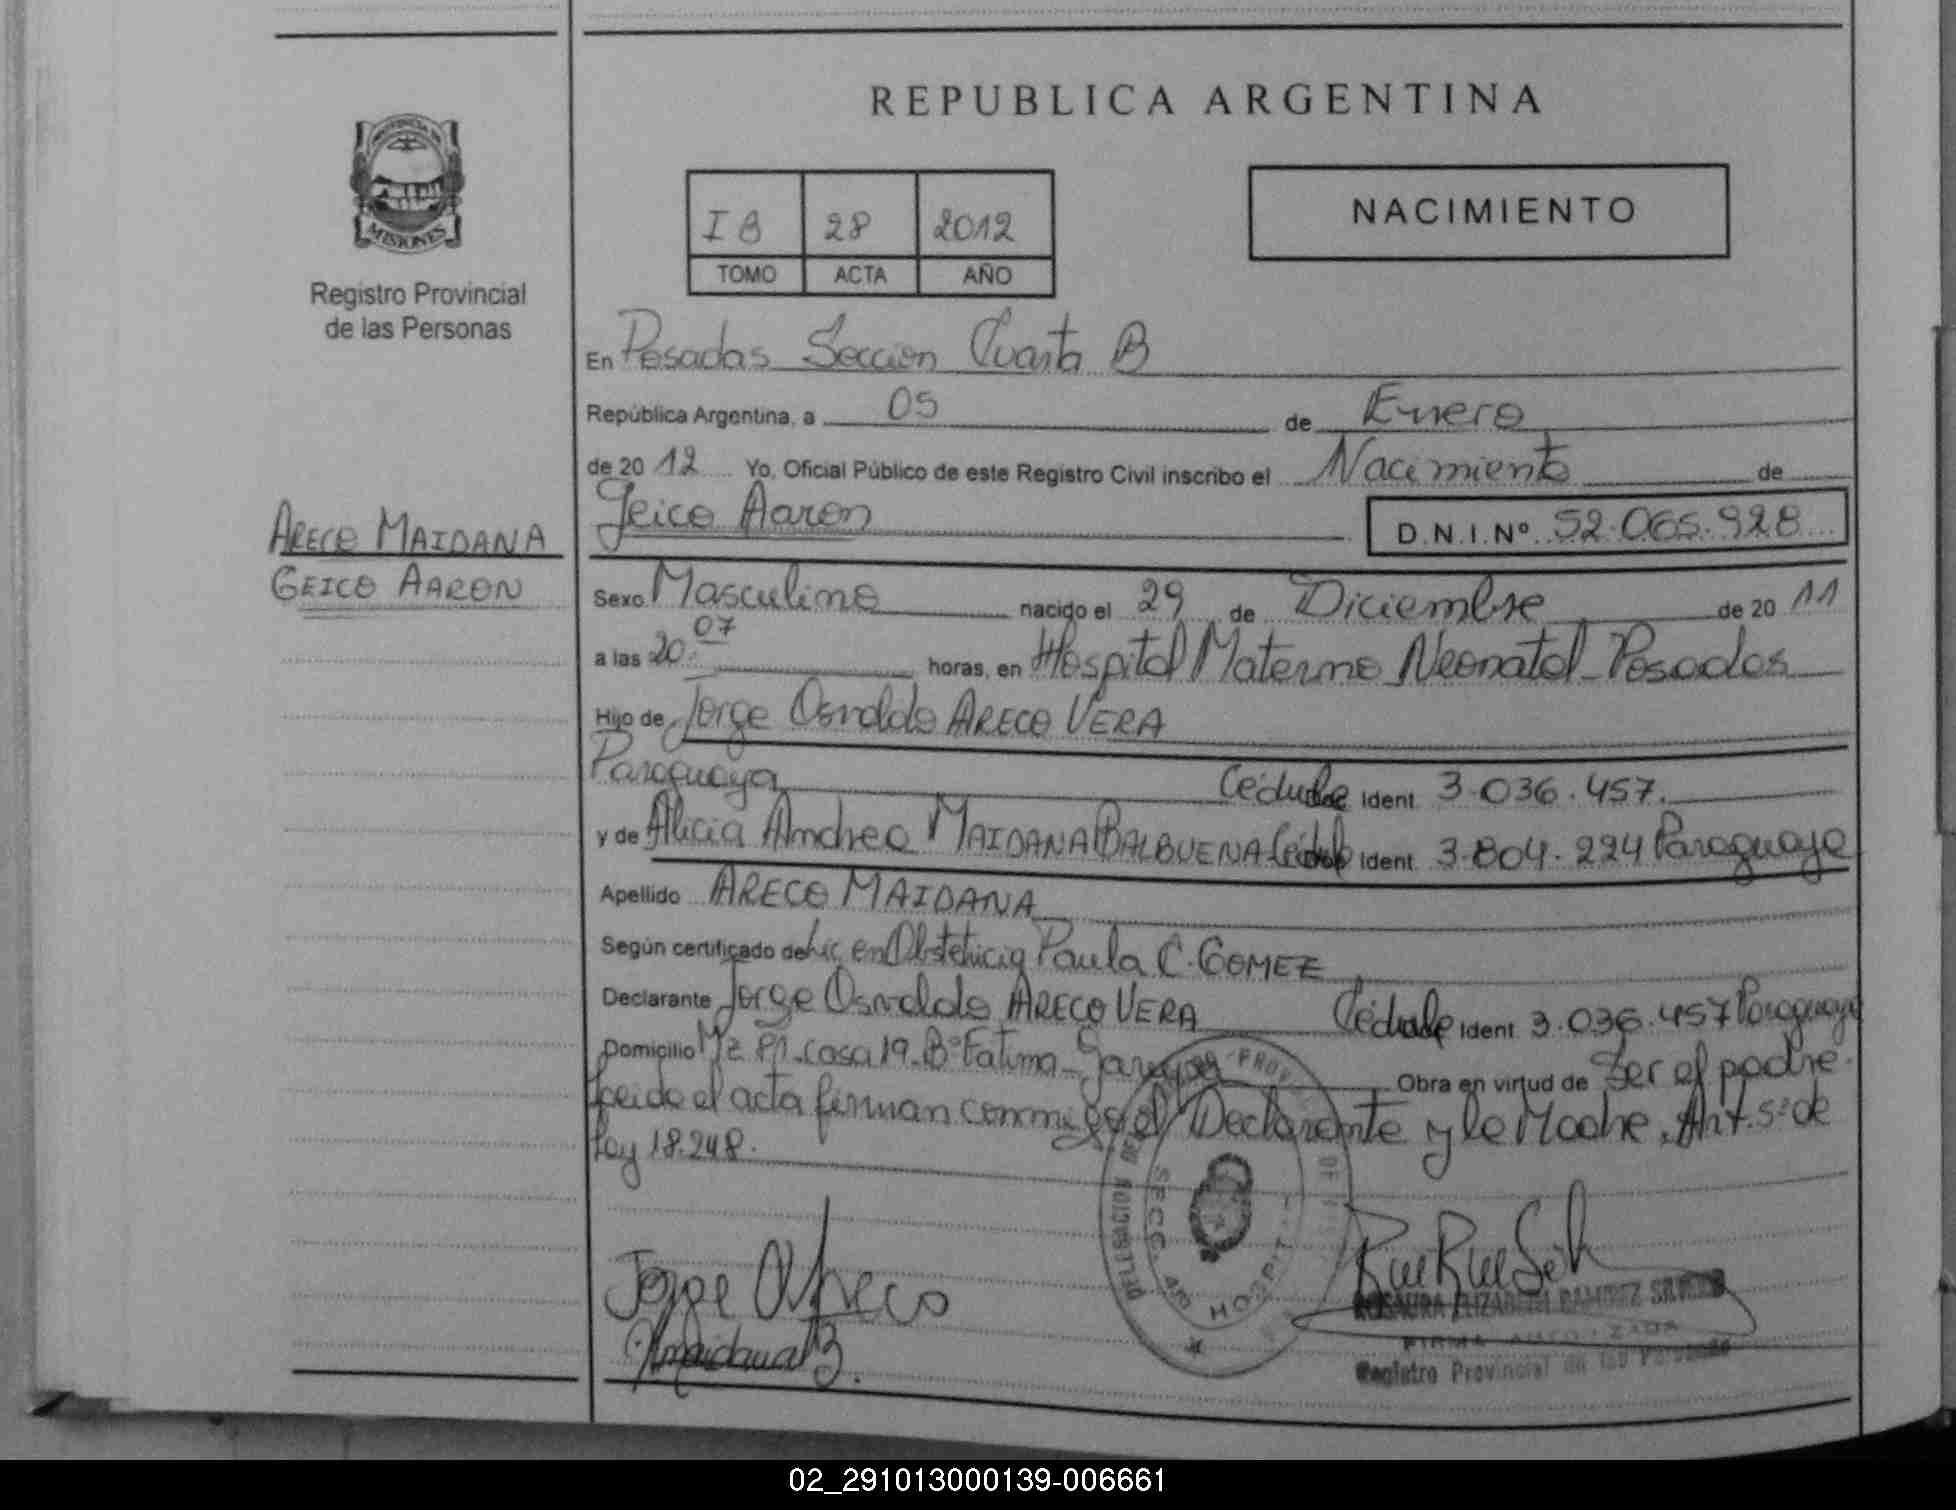 REPUBLICA ARGENTINA
PROVINCIA DE
MISIONES
Registro Provincial
de las Personas
I B 28 2012
TOMO ACTA AÑO
NACIMIENTO
En Posadas Seccion Cuarta B
República Argentina, a 05 de Enero
de 2012 Yo, Oficial Público de este Registro Civil inscribo el Nacimiento de
Geico Aaron D.N.I.Nº 52.065.928
ARECO MAIDANA
GEICO AARON
Sexo Masculino nacido el 29 de Diciembre de 2011
a las 20.07 horas, en Hospital Materno Neonatal - Posadas
Hijo de Jorge Osvaldo ARECO VERA
Paraguaya Cédula Ident. 3.036.457.
y de Alicia Andrea MAIDANA BALBUENA Cédula Ident. 3.804.224 Paraguaya
Apellido ARECO MAIDANA
Según certificado de Lic en Obstetricia Paula C. GOMEZ
Declarante Jorge Osvaldo ARECO VERA Cédula Ident. 3.036.457 Paraguaya
Domicilio Mz casa 19 - Bº Fatima - Garupa Obra en virtud de Ser el padre.
Leida el acta firman conmigo el Declarante y la Madre. Art. 5º de
Ley 18.248.
Jorge Areco
AMaidanaB.
SECC. 4ta HOSPIT
ROSAURA ELIZABETH RAMIREZ
FIRMA AUTORIZADA
Registro Provincial de las Personas
02_291013000139-006661